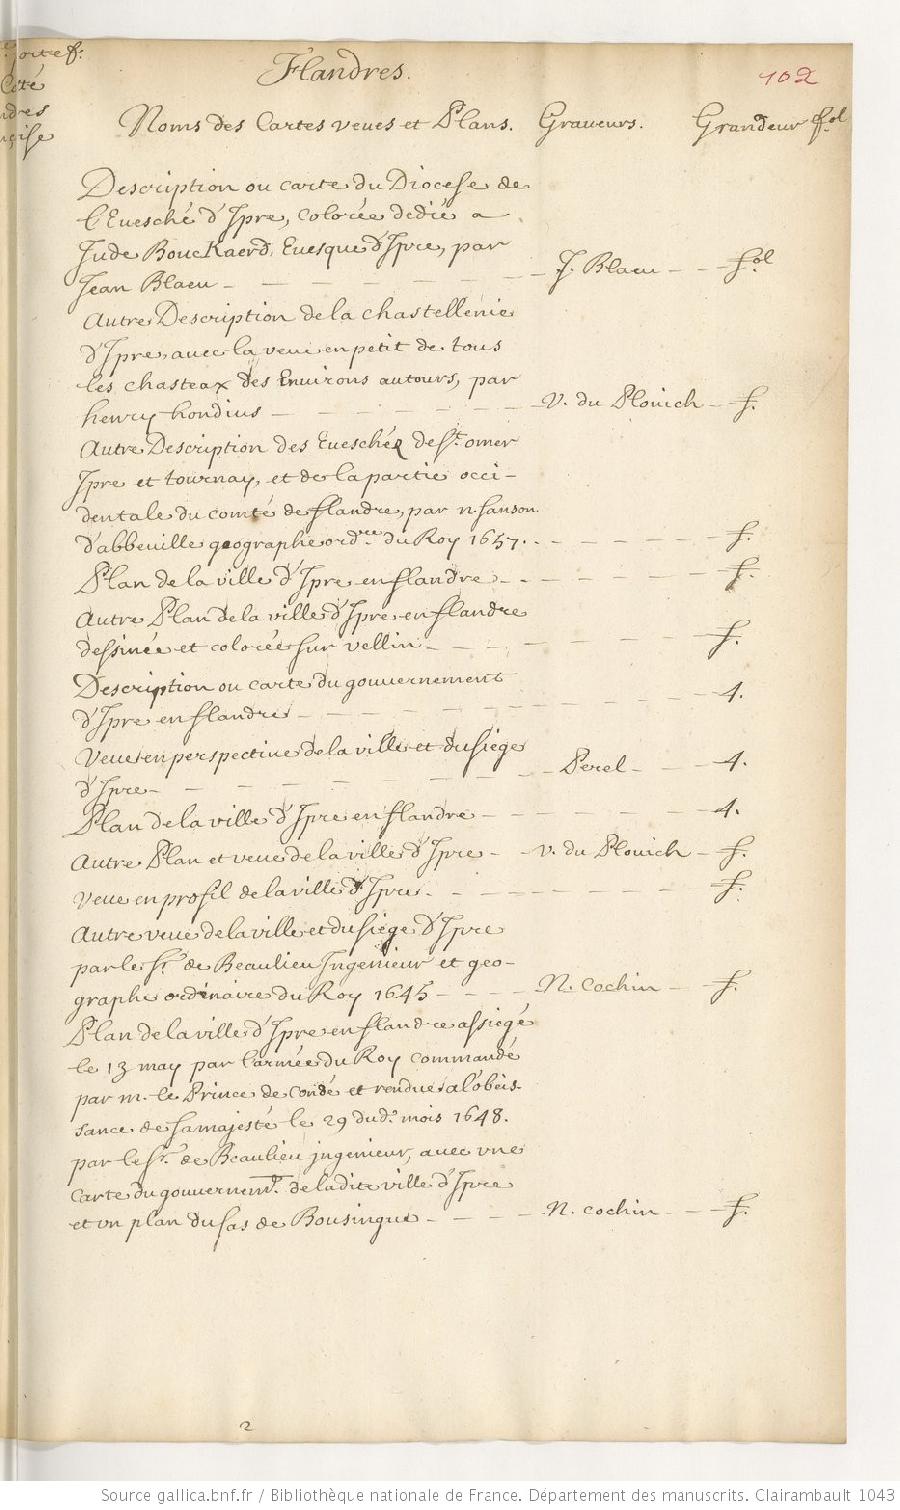 Flandres.
102
Noms des Cartes veues et Plans. Graueurs. Grandeur fol
Description ou carte du Diocese de
l'Euesché d'Ipre, colorée dedié a
Jude Bouckaerd, Euesque d'Ipre, par
Jean Blaeu - J. Blaeu - fol
Autre Description de la chastellenie
d'Ipre, avec la veue en petit de tous
les chasteax des Environs autours, par
henry hondius - V. du Plouich - f.
Autre Description des Eueschéz de St. omer
Ipre et tournay, et de la partie occi-
dentale du comté de flandre, par n. sanson
d'abbeuille geographe ord.re du Roy 1657. - f.
Plan de la ville d'Ipre en flandre - f.
Autre Plan de la ville d'Ipre en flandre
dessinée et colorée sur vellin - f.
Description ou carte du gouuernement
d'Ipre en flandre - 4.
Veue en perspectiue de la ville et du siege
d'Ipre - Perel - 4.
Plan de la ville d'Ipre en flandre - 4.
Autre Plan et veue de la ville d'Ipre - v. du Plouich - f.
Veue en profil de la ville d'Ipre - f.
Autre veue de la ville et du siege d'Ipre
par le Sr. de Beaulieu Ingenieur et geo-
graphe ordinaire du Roy 1645 - N. Cochin - f.
Plan de la ville d'Ipre en flandre assiegé
le 13 may par l'armée du Roy commandé
par m. le Prince de Condé et rendue a l'obeis-
sance de sa majesté le 29 dud. mois 1648.
par le Sr. de Beaulieu jngenieur, auec vne
carte du gouvernemt. de la dite ville d'Ipre
et vn plan du sas de Bousingue - N. Cochin - f.
2
Source gallica.bnf.fr / Bibliothèque nationale de France. Département des manuscrits. Clairambault 1043